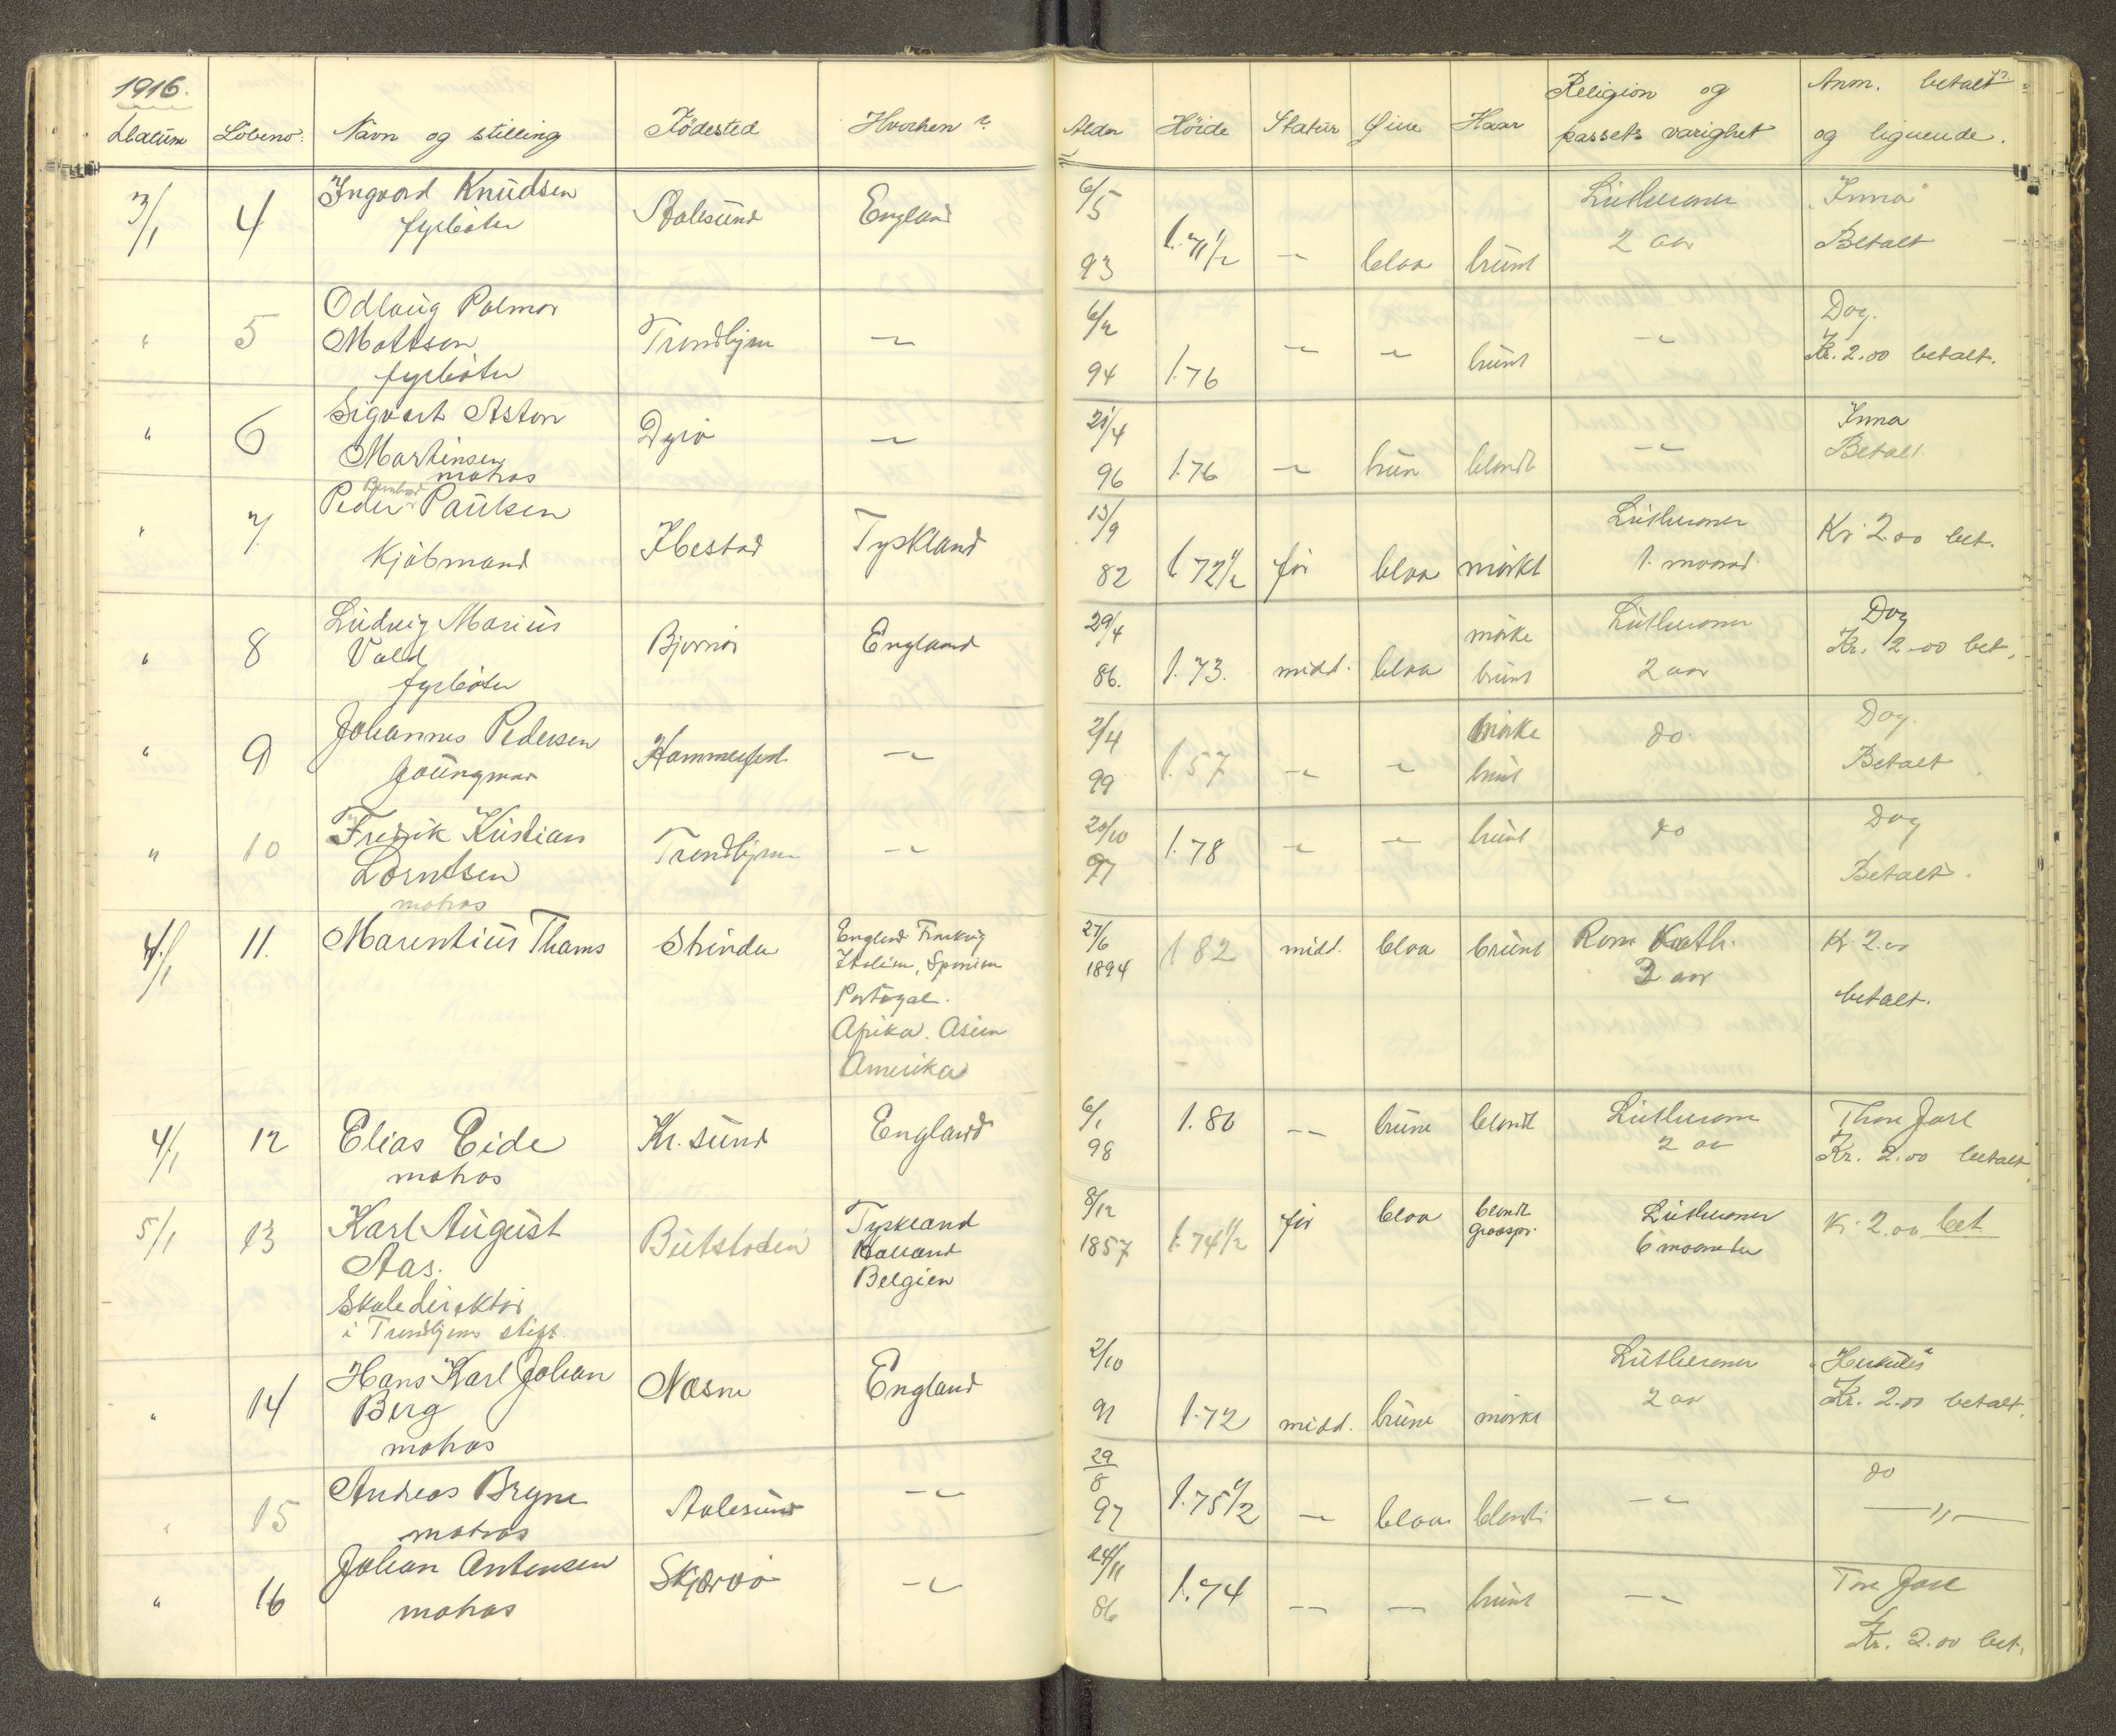 1916.
Datum Löbeno: Navn og stilling Födested Hvorhen? Alder Höide Statur Öine Haar Religion og passets varighet Anm. betalt og lignende.
3/1 4 Ingvard Knudsen Aalesund England 6/5 1.71 1/2 -"- blaa brünt Lutheraner "Inna"
fyrböter 93 2 aar Betalt
" 5 Odlaug Palmar Trondhjem -"- 6/2 1.76 -"- -"- brünt -"- Dag.
Mattsen 94 Kr. 2.00 betalt.
fyrböter
" 6 Sigvart Aston Dyrö -"- 21/4 1.76 -"- brün blondt -"- Inna
Martinsen 96 Betalt.
matros
" 7 Peder Bernhard Paulsen Ibestad Tyskland 13/9 1.72 1/2 før blaa mörkt Lutheraner Kr 2.00 bet.
Kjöbmand 82 1. maaned.
" 8 Ludvig Marius Bjørnör England 29/4 1.73. midd. blaa mörke Lutheraner Dag
Vald 86. brünt 2 aar Kr. 2.00 bet.
fyrböter
" 9 Johannes Pedersen Hammerfest -"- 2/4 1.57 -"- -"- mörke do. Dag.
Joungman 99 brünt Betalt
" 10 Fredrik Kristian Trondhjem -"- 20/10 1.78 -"- -"- brünt do Dag
Lorntsen 97 Betalt.
matros
4/1 11. Marentius Thams Strinda England Frankrig 27/6 1 82 midd. blaa brünt Rom Kath. Kr. 2.00
Italien, Spanien 1894 2 aar
Portugal. betalt.
Afrika. Asien
Amerika
4/1 12 Elias Eide Kr. sund England 6/1 1.80 -"- brüne blondt Lutheraner Thore Jarl
matros 98 2 aar Kr. 2.00 betalt
5/1 13 Karl August Butstaden Tyskland 8/12 1.74 1/2 før blaa blondt Lutheraner Kr. 2.00 bet
Aas. Holland 1857 graaspr. 6 maaneder
Skoledirektör Belgien
i Trondhjems stift.
" 14 Hans Karl Johan Næsne England 2/10 1.72 midd. brüne mörkt Lutheraner "Herkules"
Berg 91 2 aar Kr. 2.00 betalt.
matros
" 15 Andreas Bryne Aalesund -"- 29/8 1.75 1/2 -"- blaa blondt -"- do
matros 97 -"-
" 16 Johan Antonsen Skjærvö -"- 24/11 1.74 -"- -"- brünt -"- Tore Jarl
matros 86 Kr. 2.00 bet.